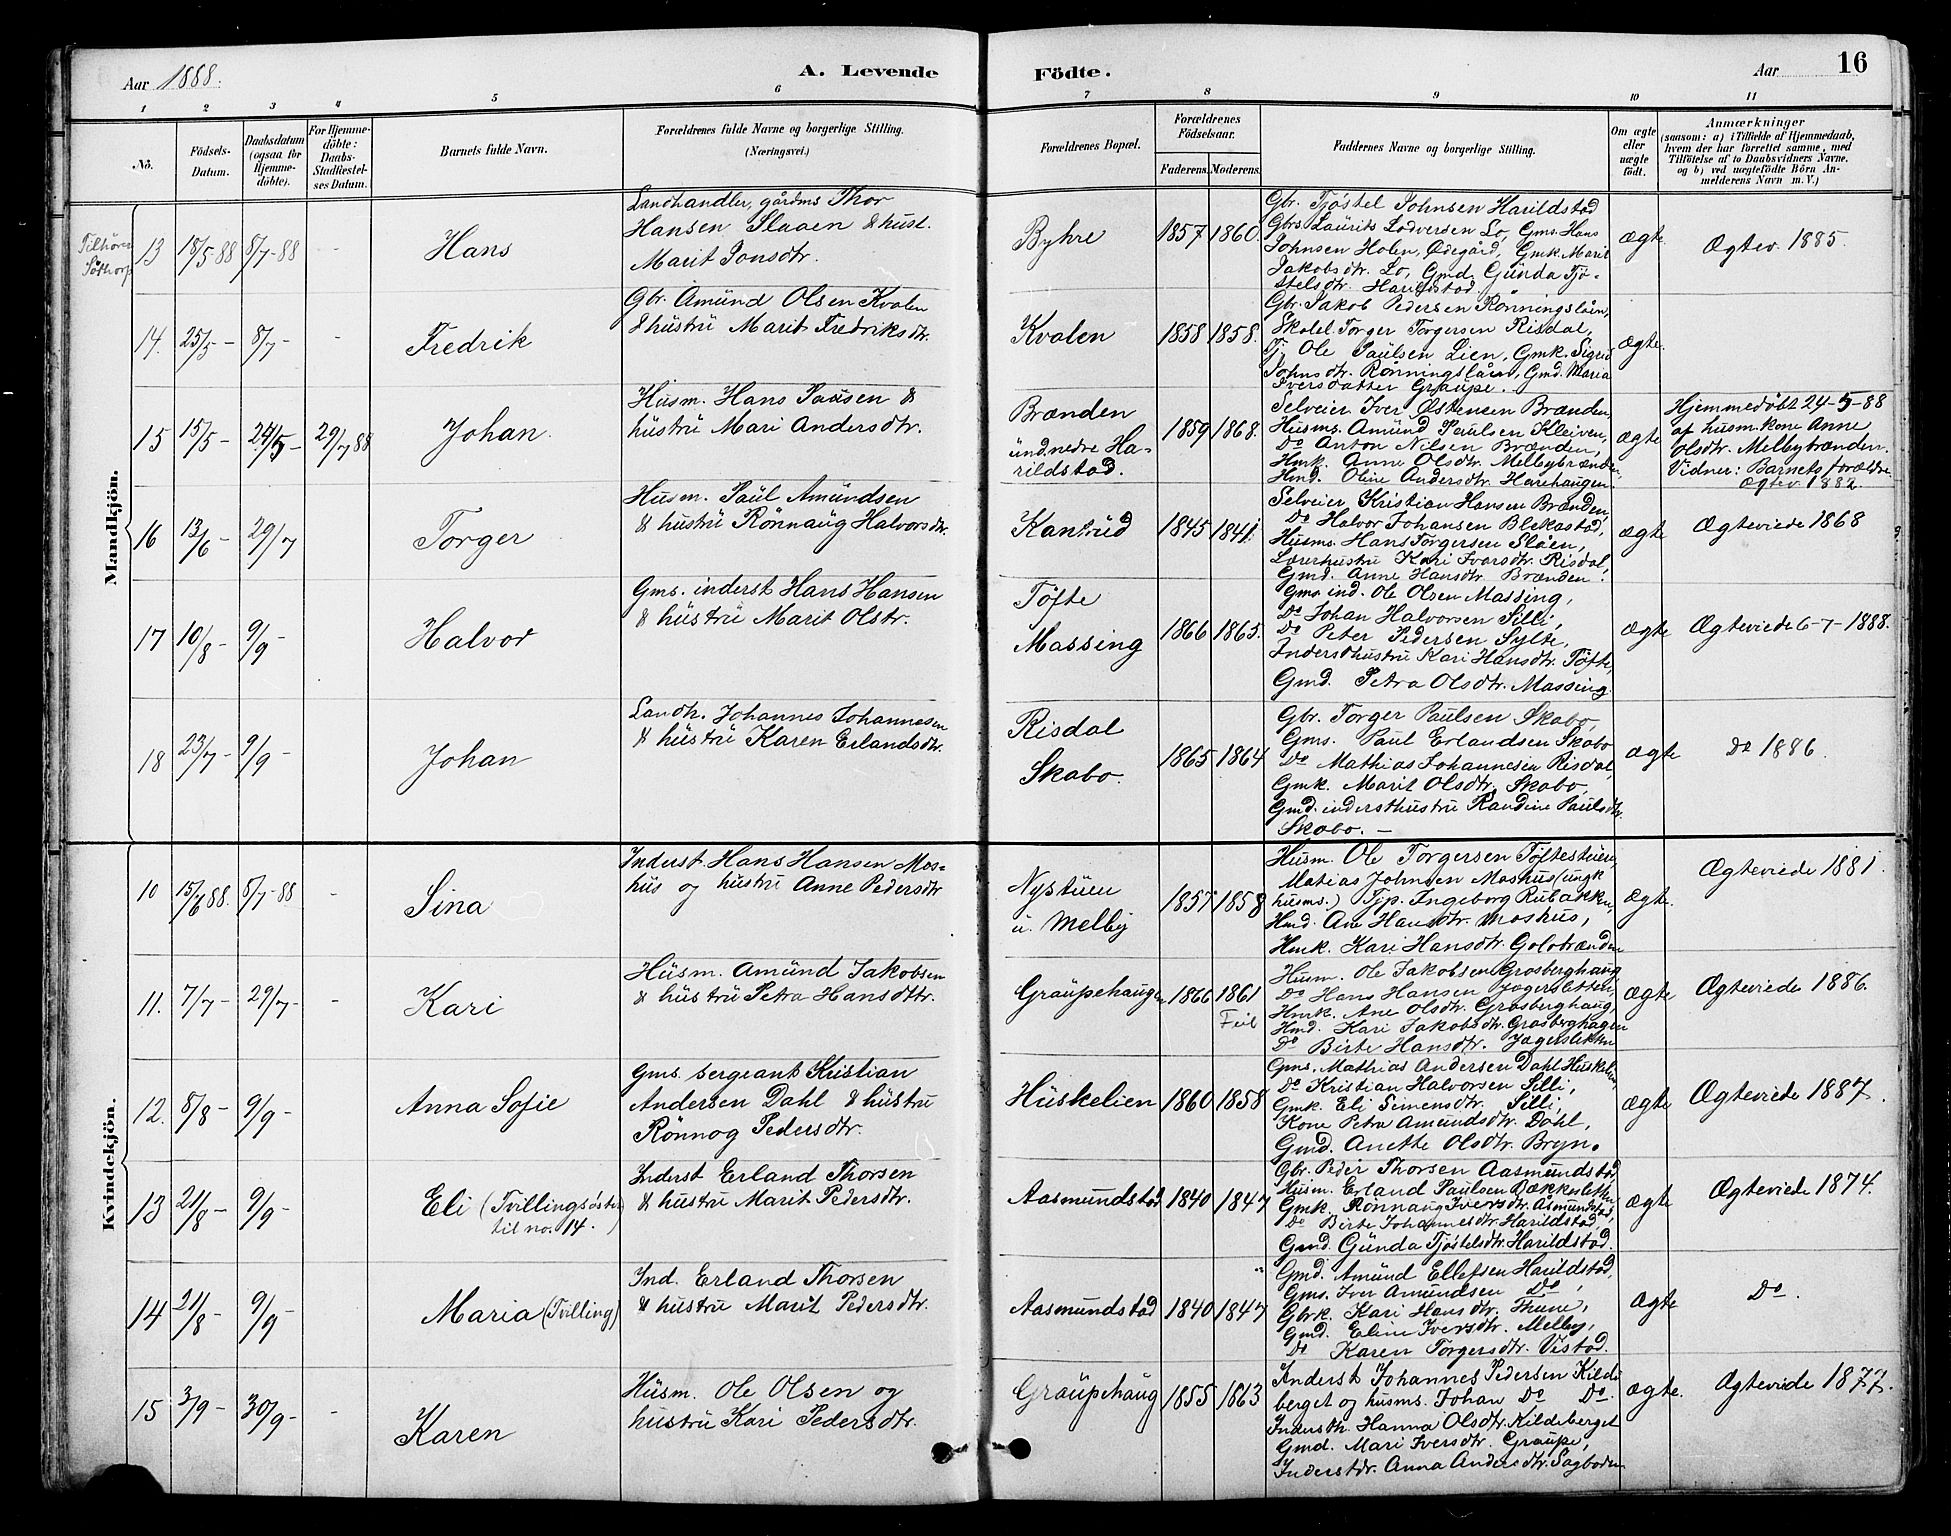 Aar 1888.
A. Levende
Födte.
Aar
16
1 2 3 4 5 6 7 8 9 10 11
No.
Födsels-Datum.
Daabsdatum (ogsaa for Hjemme-döbte).
For Hjemme-döbte: Daabs-Stadfæstel-ses Datum.
Barnets fulde Navn.
Forældrenes fulde Navne og borgerlige Stilling.
(Næringsvei.)
Forældrenes Bopæl.
Forældrenes Födselsaar.
Faderens. Moderens.
Faddernes Navne og borgerlige Stilling.
Om ægte eller uægte födt.
Anmærkninger
(saasom: a) i Tilfælde af Hjemmedaab,
hvem der har forrettet samme, med
Tilföielse af to Daabsvidners Navne.
og b) ved uægtefödte Börn An-
melderens Navn m. V.)
Mandkjön.
Tilhører
Södtorp
13 18/5-88 8/7-88 - Hans
Landhandler, gårdms Thor
Hansen Slaaen & hust.
Marit Jonsdtr.
Byhre
1857 1860.
Gbr. Tjøstel Johnsen Harildstad
Gbrs Laurits Lodversen Lo, Gms. Hans
Johnsen Holen, Ødegård, Gmk. Marit
Jakobsdtr. Lo, Gmd. Gunda Tjø-
stelsdtr. Harildstad.
ægte.
Ægtev. 1885.
14. 25/5 - 8/7 - - Fredrik
Gbr. Amund Olsen Kvalen
& hustru Marit Fredriksdtr.
Kvalen
1858 1858.
Gbr. Jakob Pedersen Rönningslåen,
Skolel. Torger Torgersen Risdal,
Tj. Ole Paulsen Lien, Gmk. Sigrid
Johnsdtr. Rönningslåen, Gmd. Maria
Iversdatter Graupe.
ægte.
15 15/5 - 24/5 - 29/7 88 Johan.
Husm. Hans Paulsen &
hustru Mari Andersdtr.
Brænden
und. nedre Ha-
rildstad.
1859 1868.
Selveier Iver Østensen Brænden,
Husms. Amund Paulsen Kleiven,
Do Anton Nilsen Brænden,
Hmk. Anne Olsdtr. Melbybrænden
Hmd. Oline Andersdtr. Harehaugen.
ægte
Hjemmedøbt 24-5-88
af husm.kone Anne
Olsdtr. Melbybrænden.
Vidner: Barnets forældre
Ægtev. 1882.
16 13/6 - 29/7 Torger
Husm. Paul Amundsen
& hustru Rönnaug Halvorsdtr.
Kanrud
1845 1841.
Selveier Kristian Hansen Brænden,
Do Halvor Johansen Blekastad,
Husms. Hans Torgersen Slåen,
Lærerhustru Kari Iversdtr. Risdal,
Gmd. Anne Hansdtr. Brænden.
ægte
Ægteviede 1868
17 10/8 9/9 - Halvor
Gms. inderst Hans Hansen
& hustru Marit Olstr.
Tøfte
Massing
1866 1865.
Gms ind. Ole Olsen Massing,
Do Johan Halvorsen Silli,
Do Peter Pedersen Sylte,
Indersthustru Kari Hansdtr. Tøfte,
Gmd. Petra Olsdtr. Massing.
ægte
Ægteviede 6-7-1888.
18 23/7 - 9/9 - Johan
Landh. Johannes Johannesen
& hustru Karen Erlandsdtr.
Risdal
Skabo.
1865 1864
Gbr. Torger Paulsen Skabo,
Gms. Paul Erlandsen Skabo
Do Mathias Johannesen Risdal,
Gmk. Marit Olsdtr. Skabo,
Gmd. indersthustru Randine Paulsdtr.
Skabo. -
ægte
Do 1886.
Kvindekjön.
10 15/6 88. 8/7-88 - Sina
Inderst. Hans Hansen Mos-
hus og hustru Anne Pedersdtr
Nystuen
u. Melby
1857 1858
Husm. Ole Torgersen Tøftestuen,
Matias Johnsen Moshus (ungk.
husms.) Tjp. Ingeborg Rubakken,
Hmd. Ane Hansdtr. Moshus,
Hmk. Kari Hansdtr. Golobrænden
ægte.
Ægteviede 1881.
11. 7/7 - 29/7 - - Kari
Husm. Amund Jakobsen
& hustru Petra Hansdttr.
Graupehaugen
1866 1861
Feil
Husm. Ole Jakobsen Grosberghaug
Do Hans Hansen Jagersletten,
Hmk. Ane Olsdtr. Grosberghaug,
Hmd. Kari Jakobsdtr. Grosberghagen
Do Birte Hansdtr. Jagersletten
ægte
Ægteviede 1886.
12. 8/8 - 9/9 - Anna Sofie
Gms. sergeant Kristian
Andersen Dahl & hustru
Rönnog Pedersdtr.
Huskelien
1860 1858
Gms. Mathias Andersen Dahl Huskelien
Do Kristian Halvorsen Silli,
Gmk. Eli Simensdtr. Silli,
Kone Petra Amundsdtr. Dahl,
Gmd. Anette Olsdtr. Bryn.
ægte
Ægteviede 1887.
13 21/8 - 9/9 - Eli (Tvillingsøster
til no. 14.)
Inderst Erland Thorsen
& hustru Marit Pedersdtr.
Aasmundstad
1840 1847
Gbr. Peder Thorsen Aasmundstad,
Husm. Erland Paulsen Bækkesletten,
Gmk. Rönnaug Iversdtr. Asmundstad,
Do Birte Johannesdtr. Harildstad,
Gmd. Gunda Tjøstelsdtr. Harildstad.
ægte
Ægteviede 1874.
14 21/8 - 9/9 - Maria (Tvilling)
Ind. Erland Thorsen
& hustru Marit Pedersdtr.
Aasmundstad
1840 1847
Gmd. Amund Ellefsen Harildstad,
Gms. Iver Amundsen Do,
Gbrk. Kari Hansdtr. Thune,
Gmd. Eline Iversdtr. Melby,
Do Karen Torgersdtr. Vistad.
ægte
Do.
15 3/9 - 30/9 - - Karen
Husm. Ole Olsen og
hustru Kari Pedersdtr.
Graupehaug
1855 1863
Inderst Johannes Pedersen Kilde-
berget og husms. Johan Do Do.
Indersth. Hanna Olsdtr. Kildeberget
Gmd. Mari Iversdtr. Graupe,
Inderstdr. Anna Andersdtr. Sagboden
ægte.
Ægteviede 1877.